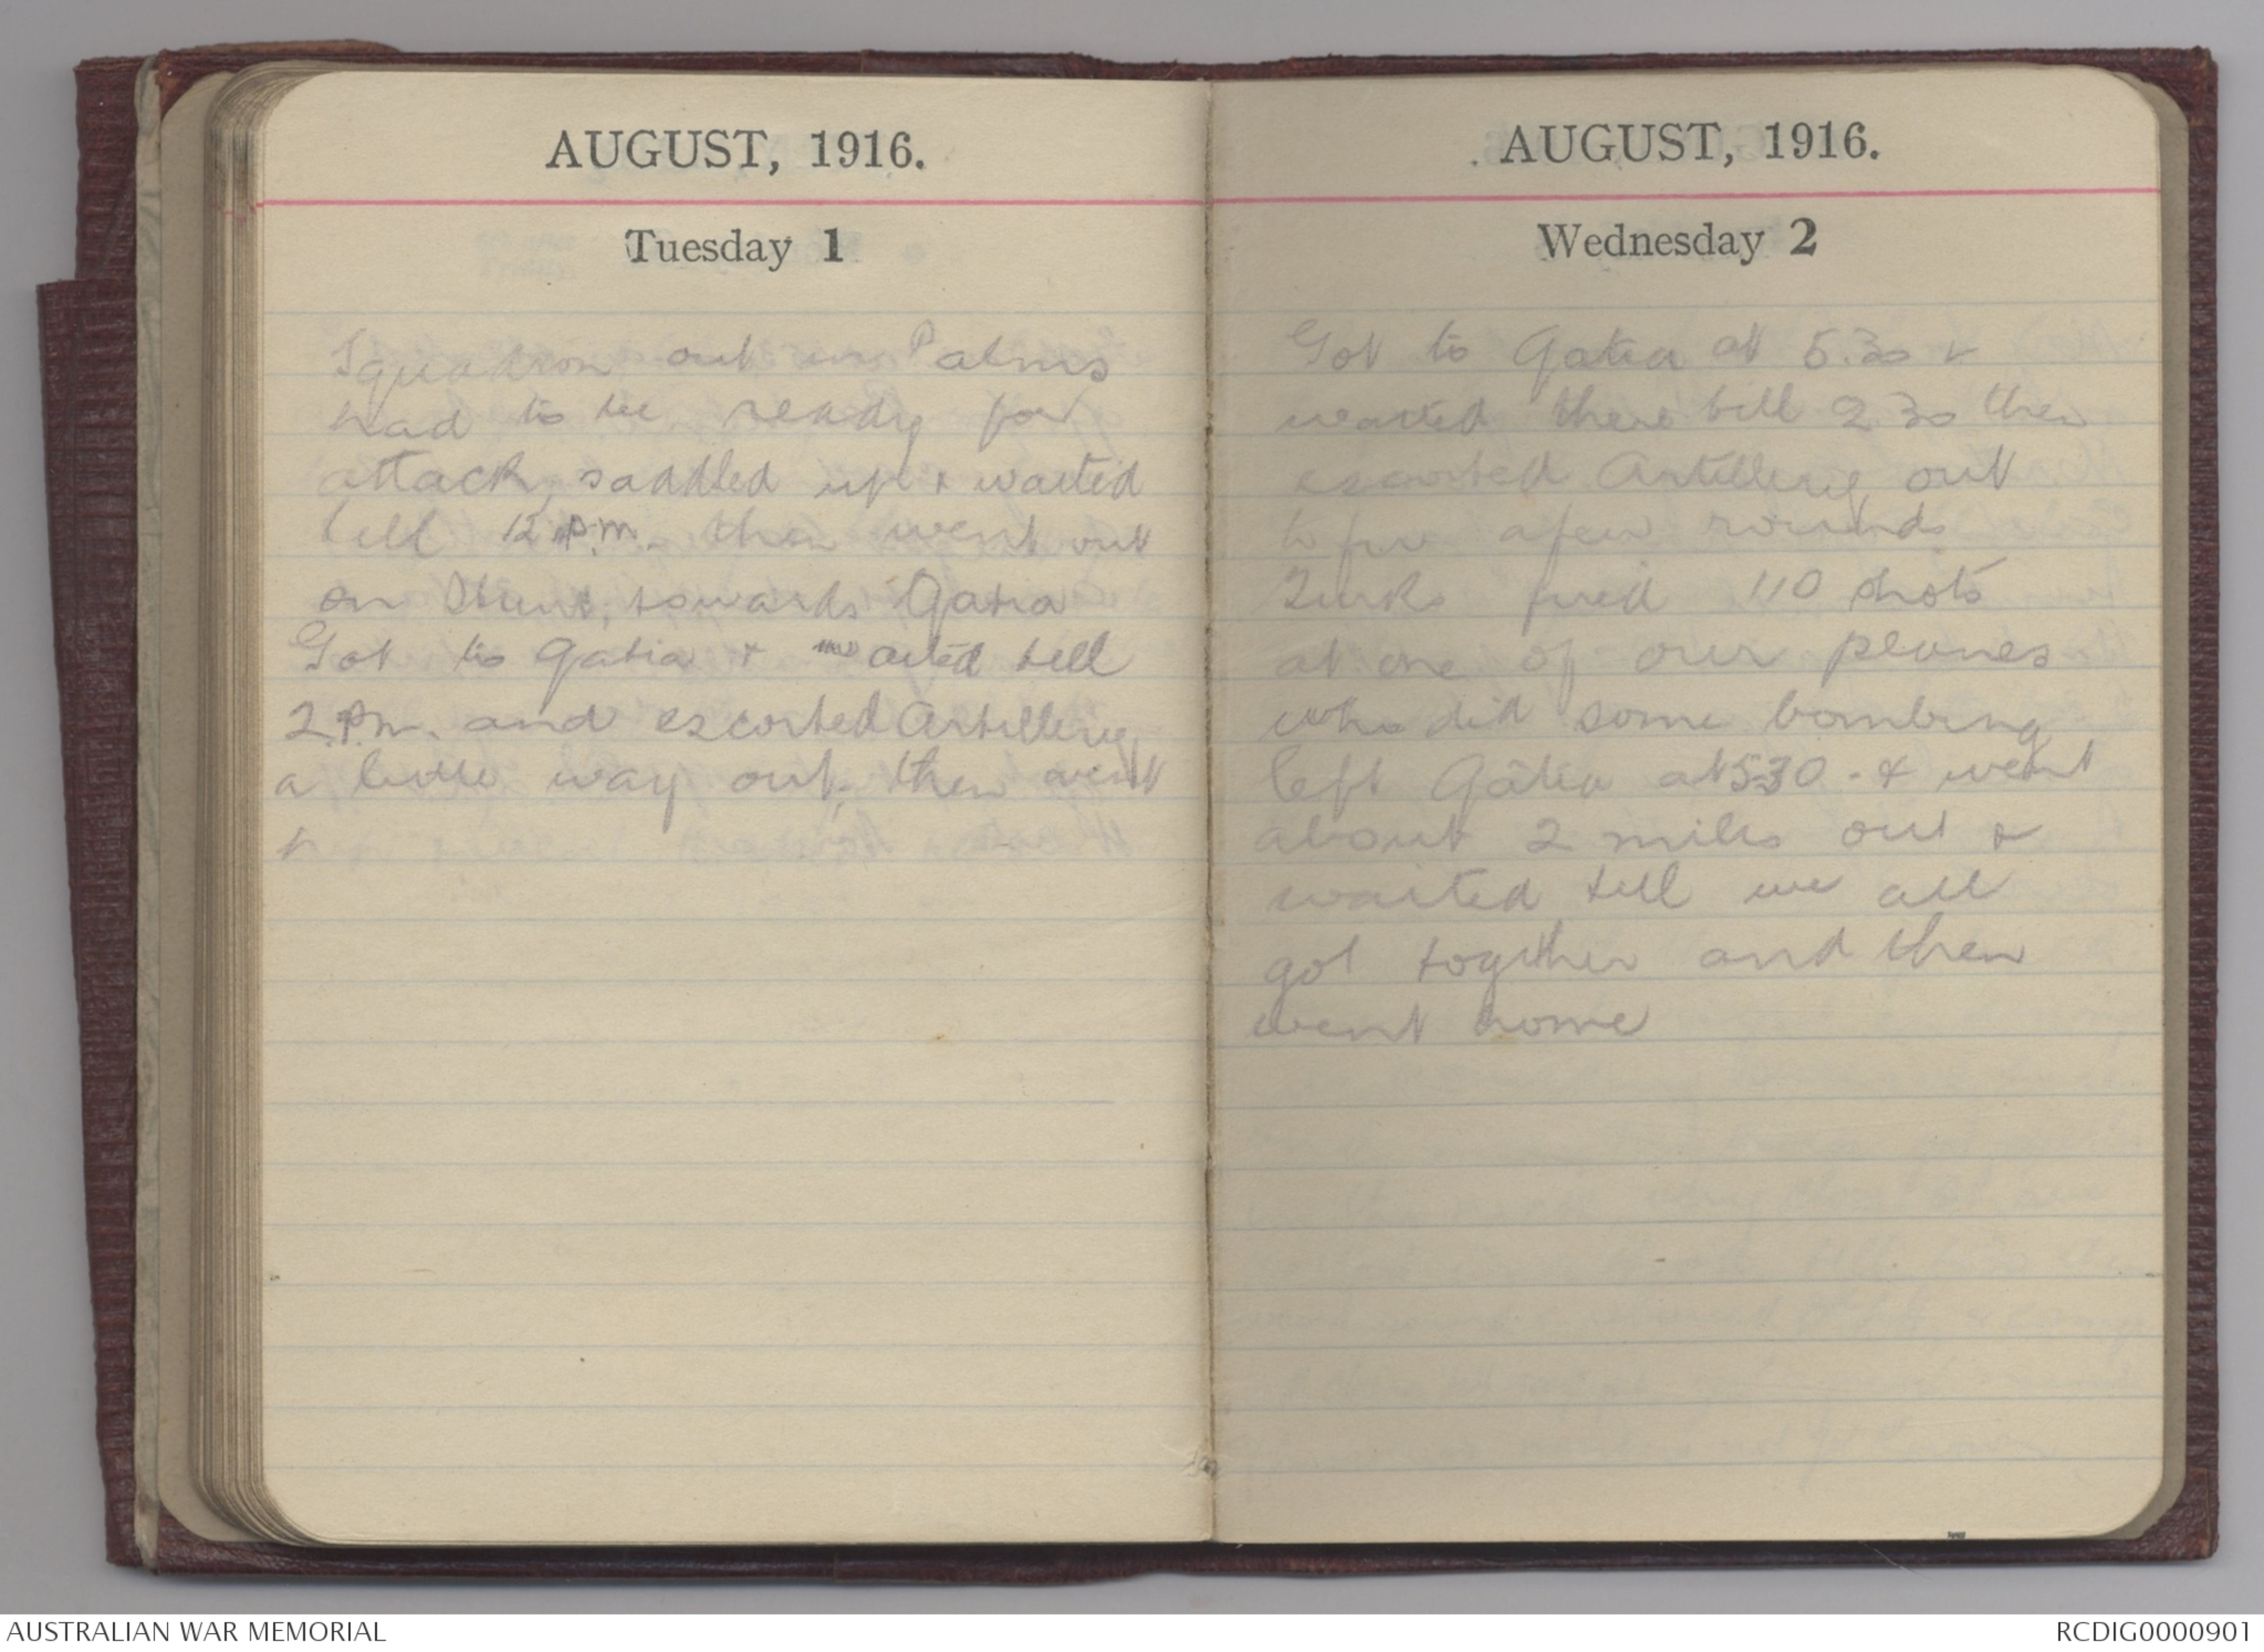 AUGUST, 1916.
Tuesday 1
Squadron out in Palms
had to be ready for
attack, saddled up & waited
till 12 p.m. then went out
on Stunt, towards Qatia
Got to Qatia & waited till
2 P.m. and escorted Artillery
a little way out, then went
AUGUST, 1916.
Wednesday 2
Got to Qatia at 5.30 &
waited there till 2 30 then
escorted Artillery out
to fire a few rounds
Turks fired 110 shots
at one of our planes
who did some bombing
left Qatia at 530 - & went
about 2 miles out &
waited till we all
got together and then
went home
AUSTRALIAN WAR MEMORIAL
RCDIG0000901